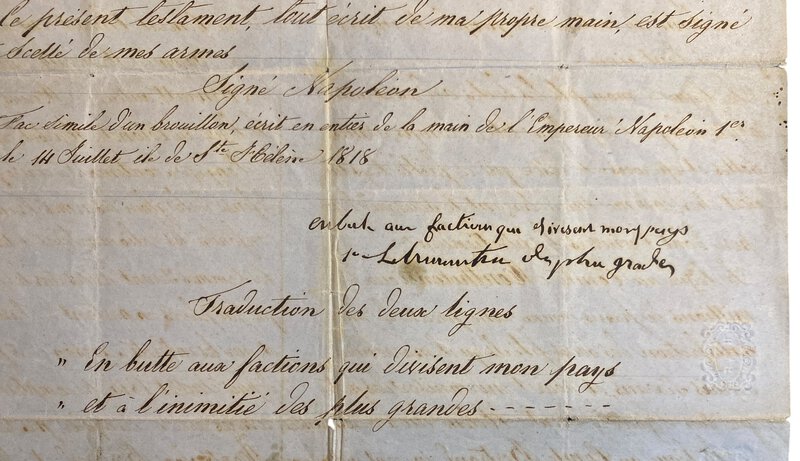 le présent testament, tout écrit de ma propre main, est signé
scellé de mes armes
Signé Napoléon
Fac simile d'un brouillon, écrit en entier de la main de l'Empereur Napoléon 1er
le 14 Juillet ile de Ste Hélène 1818
en bute aux factions qui divisent mon pays
plus grandes
Traduction des deux lignes
" En butte aux factions qui divisent mon pays
" et à l'inimitié des plus grandes - - - - - - -